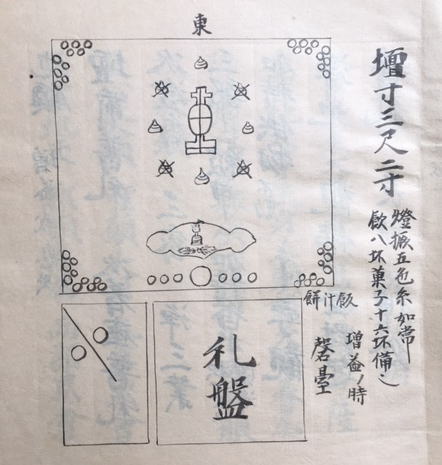 東
壇寸三尺二寸
燈 五色糸如常
飯八坏菓子十六坏備之
飯汁餅
増益ノ時
磬臺
礼盤